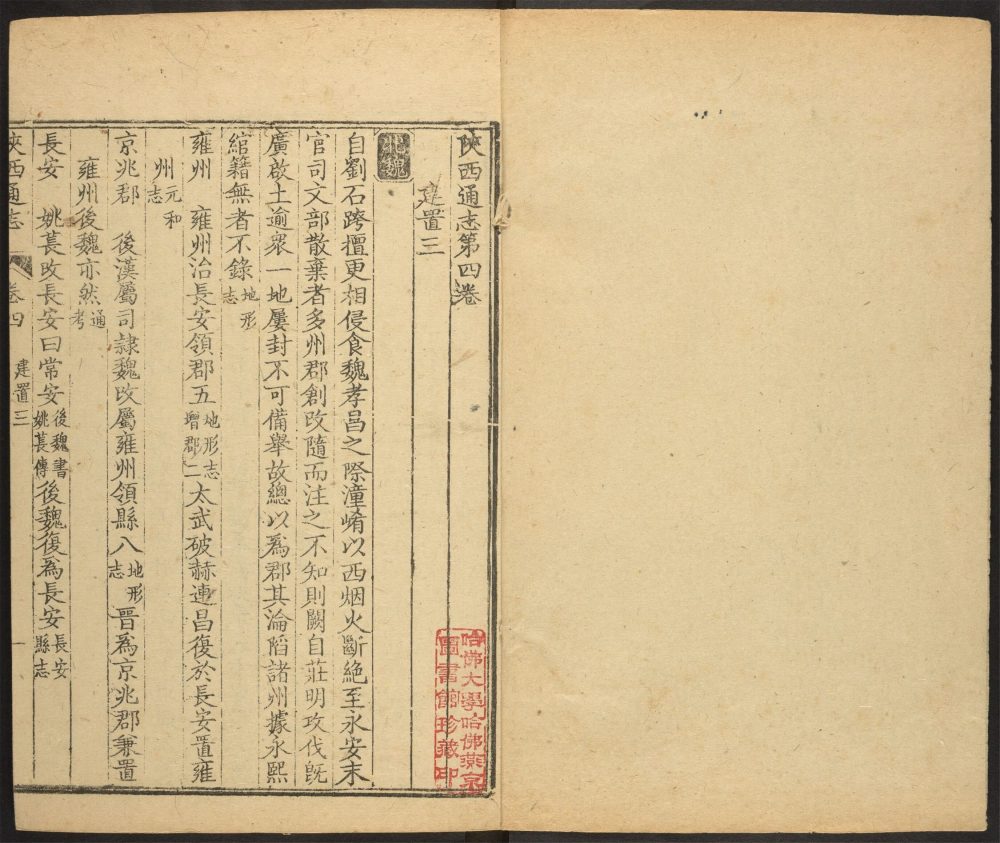 陝西通志第四卷
建置三
北魏
自劉石跨擅更相侵食魏孝昌之際潼崤以西烟火斷絶至永安末
官司文部散棄者多州郡創改隨而注之不知則闕自莊明攻伐旣
廣啟土逾衆一地屢封不可備舉故總以爲郡其淪陷諸州據永熙
綰籍無者不錄地形志
雍州 雍州治長安領郡五地形志增郡二太武破赫連昌復於長安置雍
州元和志
京兆郡 後漢屬司隷魏改屬雍州領縣八地形志晉爲京兆郡兼置
雍州後魏亦然通考
長安 姚萇改長安曰常安後魏書姚萇傳後魏復爲長安長安縣志
陝西通志 卷四 建置三 一
哈佛大學哈佛燕京
圖書館珍藏印